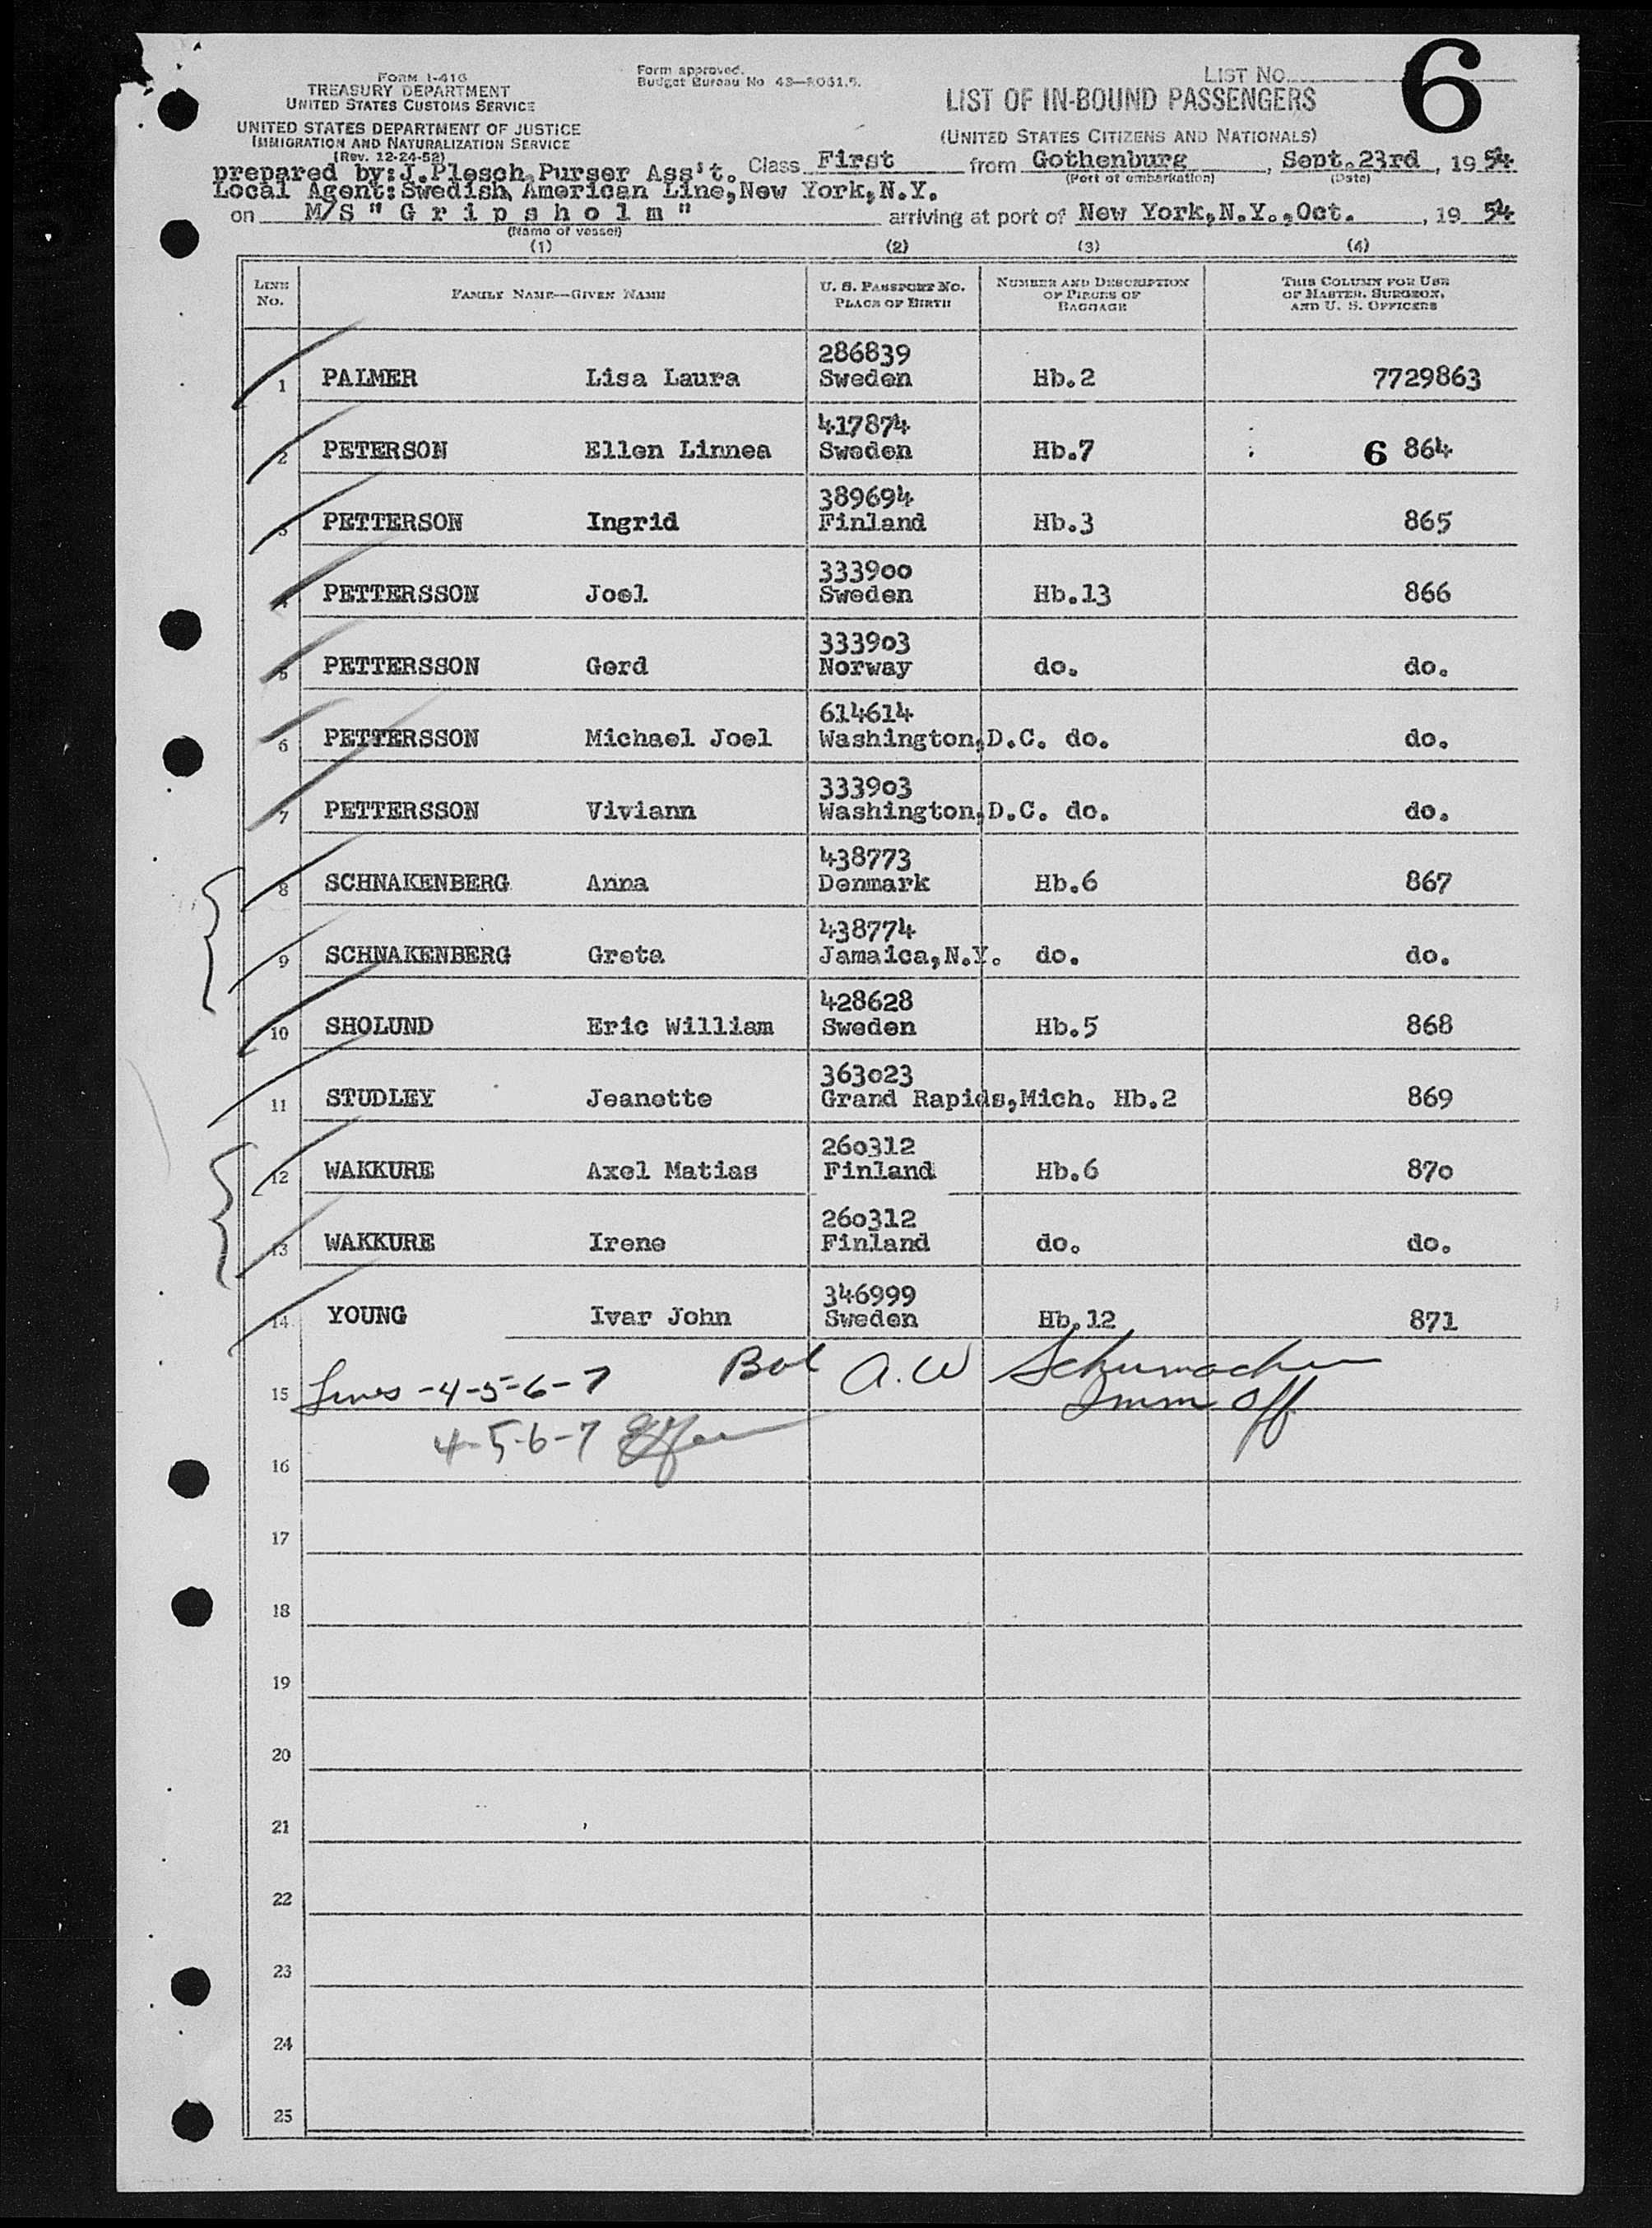 FORM I-416
TREASURY DEPARTMENT
UNITED STATES CUSTOMS SERVICE
UNITED STATES DEPARTMENT OF JUSTICE
IMMIGRATION AND NATURALIZATION SERVICE
(Rev. 12-24-52)
Form approved.
Budget Bureau No 43—R031.5.
LIST NO. 6
LIST OF IN-BOUND PASSENGERS
(UNITED STATES CITIZENS AND NATIONALS)
prepared by: J.Plesch Purser Ass't. Class First from Gothenburg, Sept.23rd, 1954
(Port of embarkation) (Date)
Local Agent: Swedish American Line, New York, N.Y.
on M/S " G r i p s h o l m " arriving at port of New York, N.Y., Oct. , 19 54
(Name of vessel)
(1) (2) (3) (4)
LINE No. FAMILY NAME—GIVEN NAME U. S. PASSPORT NO. PLACE OF BIRTH NUMBER AND DESCRIPTION OF PIECES OF BAGGAGE THIS COLUMN FOR USE OF MASTER, SURGEON, AND U. S. OFFICERS
286839
1 PALMER Lisa Laura Sweden Hb.2 7729863
417874
2 PETERSON Ellen Linnea Sweden Hb.7 6 864
389694
3 PETTERSON Ingrid Finland Hb.3 865
333900
4 PETTERSSON Joel Sweden Hb.13 866
333903
5 PETTERSSON Gerd Norway do. do.
614614
6 PETTERSSON Michael Joel Washington,D.C. do. do.
333903
7 PETTERSSON Viviann Washington,D.C. do. do.
438773
8 SCHNAKENBERG Anna Denmark Hb.6 867
438774
9 SCHNAKENBERG Greta Jamaica,N.Y. do. do.
428628
10 SHOLUND Eric William Sweden Hb.5 868
363023
11 STUDLEY Jeanette Grand Rapids,Mich. Hb.2 869
260312
12 WAKKURE Axel Matias Finland Hb.6 870
260312
13 WAKKURE Irene Finland do. do.
346999
14 YOUNG Ivar John Sweden Hb.12 871
15 Lines -4-5-6-7 Bal A.W Schumacher
Imm Off
4-5-6-7
16
17
18
19
20
21
22
23
24
25